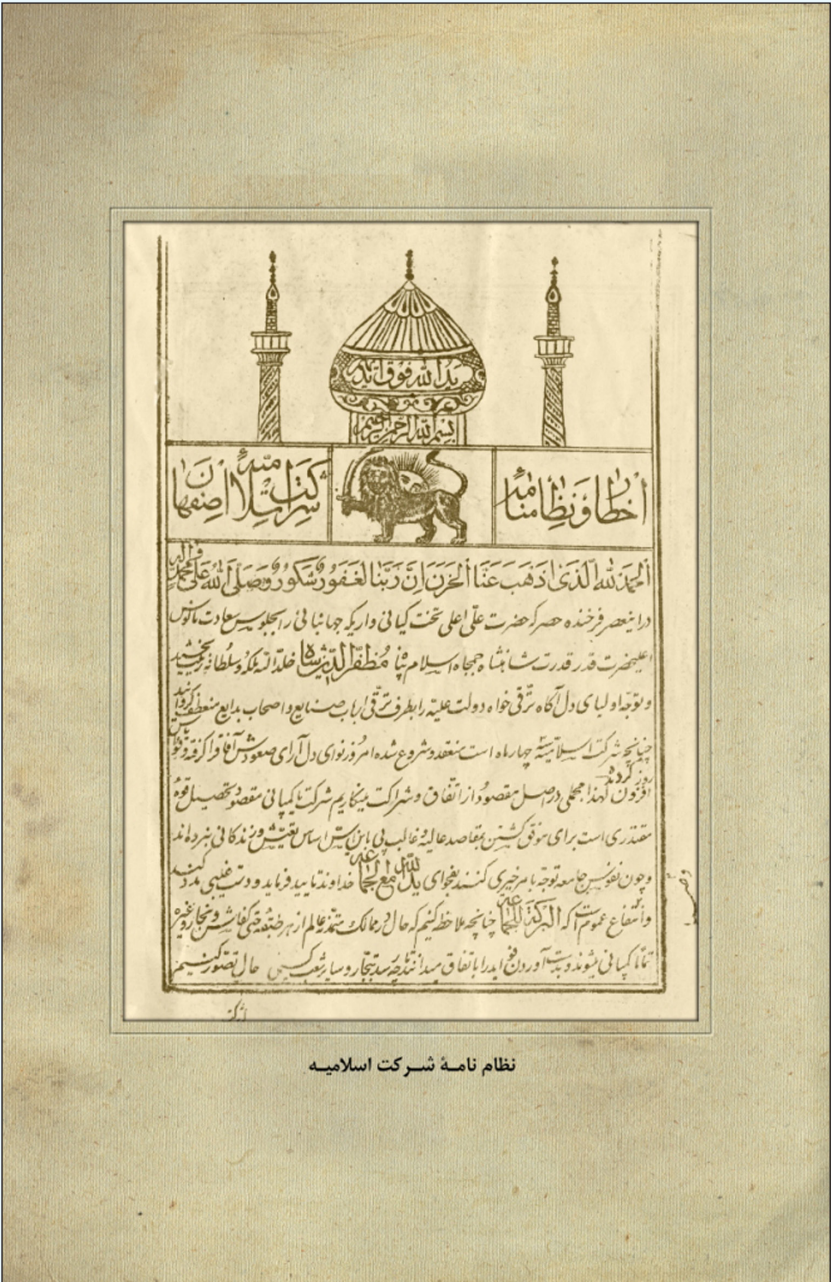 ید الله فوق ایدیهم
بسم الله الرحمن الرحیم
اخطار و نظامنامه
شرکت اسلامیه اصفهان
الحمد لله الذی اذهب عنا الحزن ان ربنا لغفور شکور و صلی الله علی محمد و آله
در این عصر فرخنده حصر که حضرت علی اعلی تخت کیانی و اریکه جهانبانی را بجلوس سعادت مأنوس
اعلیحضرت قدر قدرت شاهنشاه جمجاه اسلام پناه مظفرالدین شاه خلد الله ملکه و سلطانه بخشید
و بتوجه اولیای دل آگاه ترقی خواه دولت علیه را بطرف ترقی ارباب صنایع و اصحاب بدایع منعطف
چنانچه شرکت اسلامیه چهار ماه است منعقد و شروع شده امروز نوای دل آرای صعودش آفاق را گرفته
روز افزون لهذا مجملی در اصل مقصود از اتفاق و شراکت مینگاریم شرکت یا کمپانی مقصود تحصیل قوهٔ
مقتدری است برای موفق گشتن بمقاصد عالیه و غالب پی باین اساس تعیش و زندگانی نبرده‌اند
و چون نفوس جامعه توجه بامر خیری کنند بفحوای ید الله مع الجماعه خداوند تایید فرماید و دست غیبی مدد کند
و انتفاع عموم است که البرکة مع الجماعه چنانچه ملاحظه کنیم که حال در ممالک متمدنه عالم از هر طبقه حتی کفاش و نجار و غیره
تماما کمپانی میشوند و بدست آوردن نفع را باتفاق میدانند تا چه رسد بتجار و سایر شعب حال تصور کنیم
نظام نامهٔ شرکت اسلامیه